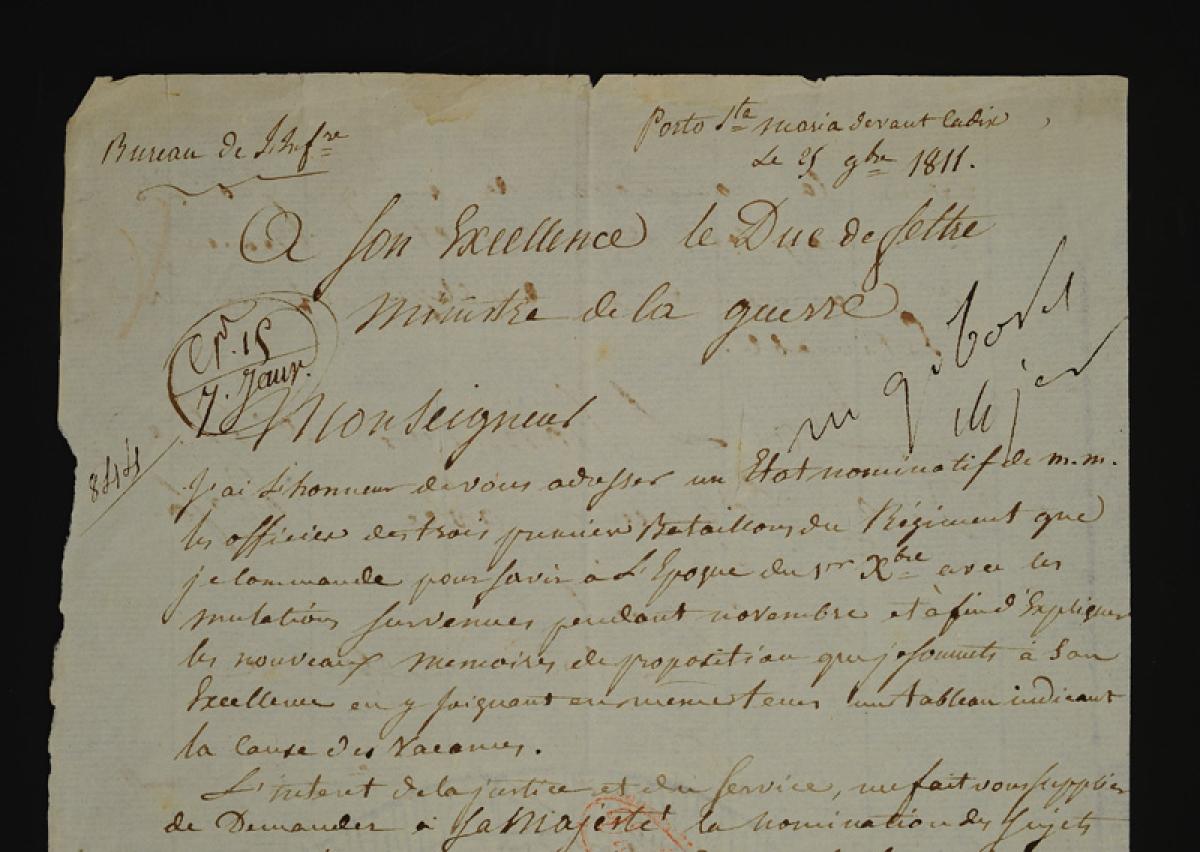 Bureau de L'Inf.re
Porto Sta maria devant Cadix
Le 25 9bre 1811.
A Son Excellence le Duc de feltre
Ministre de la guerre
15
7. Janv.
Monseigneur
J'ai L'honneur de vous adresser un Etat nominatif de m.m.
les officier des trois premier Bataillons du Régiment que
je Commande pour servir à L'Epoque du 1er Xbre avec les
mutations survenues pendant novembre et à fin d'Expliquer
les nouveaux memoires de proposition que je soumets à Son
Excellence en y joignant en même tems un tableau indicant
la Cause des Vacances.
L'interet de la justice et du Service, me fait vous supplier
de Demander à Sa Majesté la nomination des Sujets